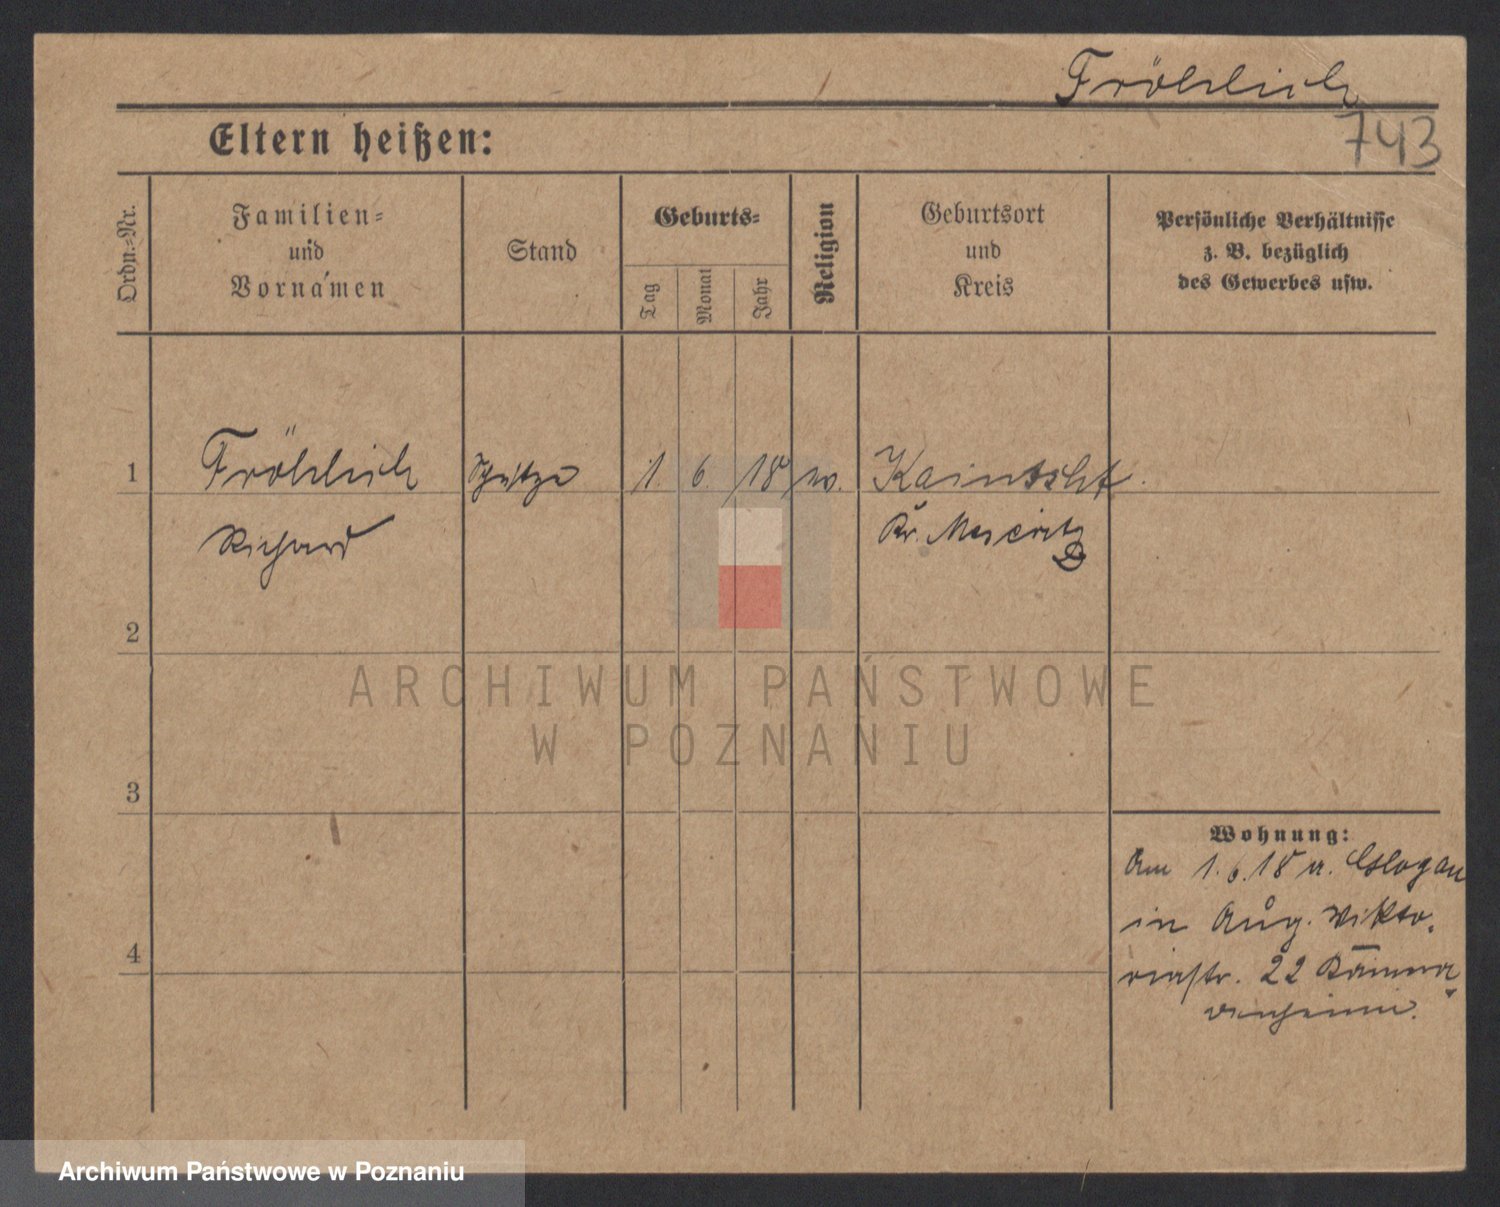 Fröhlich
743
Eltern heißen:
Ordn.=Nr.
Familien=
und
Vornamen
Stand
Geburts=
Tag
Monat
Jahr
Religion
Geburtsort
und
Kreis
Persönliche Verhältnisse
z. B. bezüglich
des Gewerbes usw.
1
Fröhlich
Schütze
1. 6. 18
ev.
Richard
Kr. Meseritz
2
ARCHIWUM PAŃSTWOWE
W POZNANIU
3
Wohnung:
Am 1.6.18 n. Glogau
in Aug. Vikto-
riastr. 22
4
Archiwum Państwowe w Poznaniu